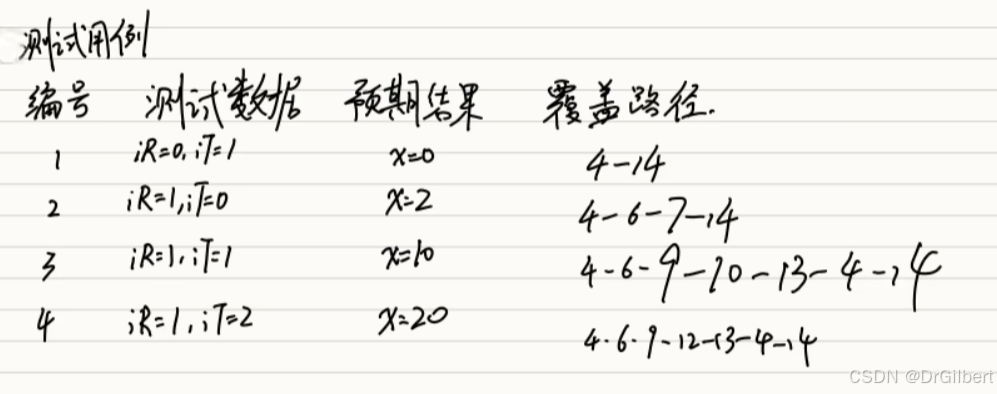 测试用例
编号 测试数据 预期结果 覆盖路径.
1 iR=0, iT=1 x=0 4-14
2 iR=1, iT=0 x=2 4-6-7-14
3 iR=1, iT=1 x=10 4-6-9-10-13-4-14
4 iR=1, iT=2 x=20 4-6-9-12-13-4-14
CSDN @DrGilbert